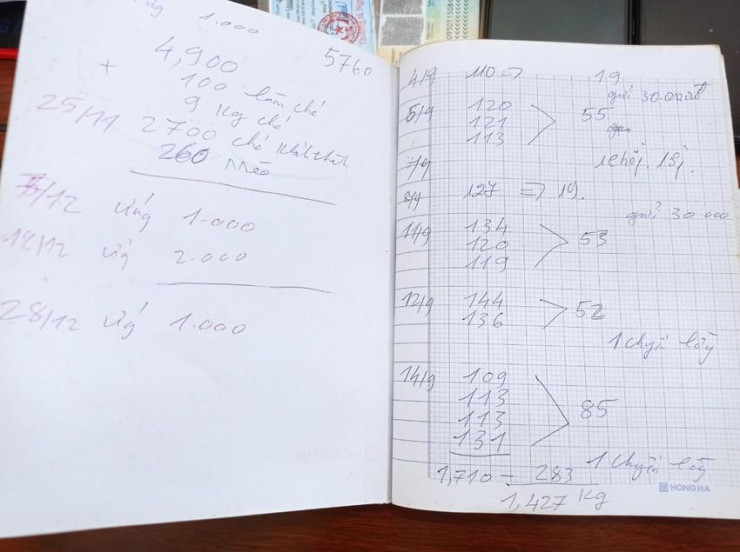 ứng 1.000
4,900 5760
+ 100 làm chó
9 kg chó
25/11 2700 chó
260 mèo
7/12 ứng 1.000
12/12 ứng 2.000
28/12 ứng 1.000
4/9 110 => 19
gửi 30.000đ
5/9 120
121 55
113
7/9
8/9 127 => 19.
gửi 30.000
11/9 134
120 53
119
12/9 144 52
136
1 chuyến lấy
14/9 109
113 85
113
131
1 chuyến lấy
1,710 - 283
HONG HA
1,427 kg